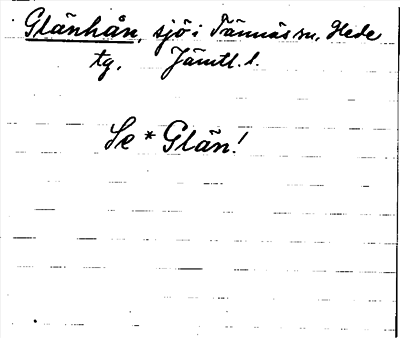 Glänhån, sjö i Tännäs sn, Hede
tg. Jämtl. l.
Se *Glän!